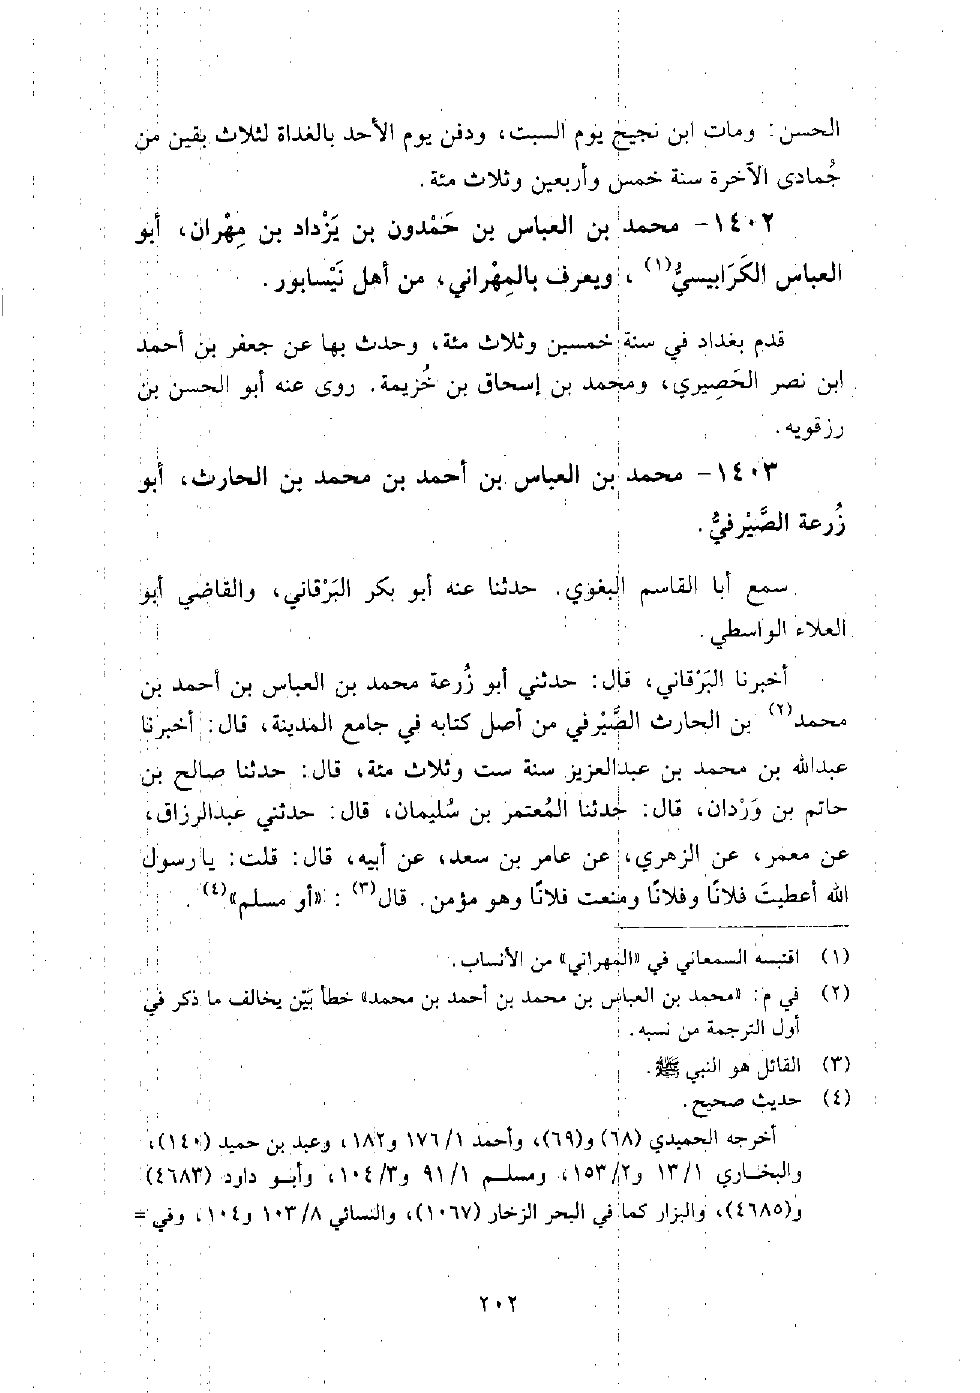 الحسن: ومات ابن نجيح يوم السبت، ودفن يوم الأحد بالغداة لثلاث بقين من
جُمادى الآخرة سنة خمس وأربعين وثلاث مئة.
١٤٠٢- محمد بن العباس بن حَمْدون بن يَزْداد بن مِهْران، أبو
العباس الكَرَابيسيُّ(١)، ويعرف بالمِهْراني، من أهل نَيْسابور.
قدم بغداد في سنة خمسين وثلاث مئة، وحدث بها عن جعفر بن أحمد
ابن نصر الحَصِيري، ومحمد بن إسحاق بن خُزيمة. روى عنه أبو الحسن بن
رزقويه.
١٤٠٣- محمد بن العباس بن أحمد بن محمد بن الحارث، أبو
زُرعة الصَّيْرفيُّ.
سمع أبا القاسم البغوي. حدثنا عنه أبو بكر البَرْقاني، والقاضي أبو
العلاء الواسطي.
أخبرنا البَرْقاني، قال: حدثني أبو زُرعة محمد بن العباس بن أحمد بن
محمد(٢) بن الحارث الصَّيْرفي من أصل كتابه في جامع المدينة، قال: أخبرنا
عبدالله بن محمد بن عبدالعزيز سنة ست وثلاث مئة، قال: حدثنا صالح بن
حاتم بن وَرْدان، قال: حدثنا المُعتمر بن سُليمان، قال: حدثني عبدالرزاق،
عن معمر، عن الزهري، عن عامر بن سعد، عن أبيه، قال: قلت: يا رسول
الله أعطيتَ فلانًا وفلانًا ومنعت فلانًا وهو مؤمن. قال(٣): «أو مسلم»(٤).
(١) اقتبسه السمعاني في «المهراني» من الأنساب.
(٢) في م: «محمد بن العباس بن محمد بن أحمد بن محمد» خطأ بَيِّن يخالف ما ذكر في
أول الترجمة من نسبه.
(٣) القائل هو النبي ﷺ.
(٤) حديث صحيح.
أخرجه الحميدي (٦٨) و(٦٩)، وأحمد ١/ ١٧٦ و١٨٢، وعبد بن حميد (١٤٠)،
والبخاري ١/ ١٣ و٢/ ١٥٣، ومسلم ١/ ٩١ و٣/ ١٠٤، وأبو داود (٤٦٨٣)
و(٤٦٨٥)، والبزار كما في البحر الزخار (١٠٦٧)، والنسائي ٨/ ١٠٣ و١٠٤، وفي =
٢٠٢